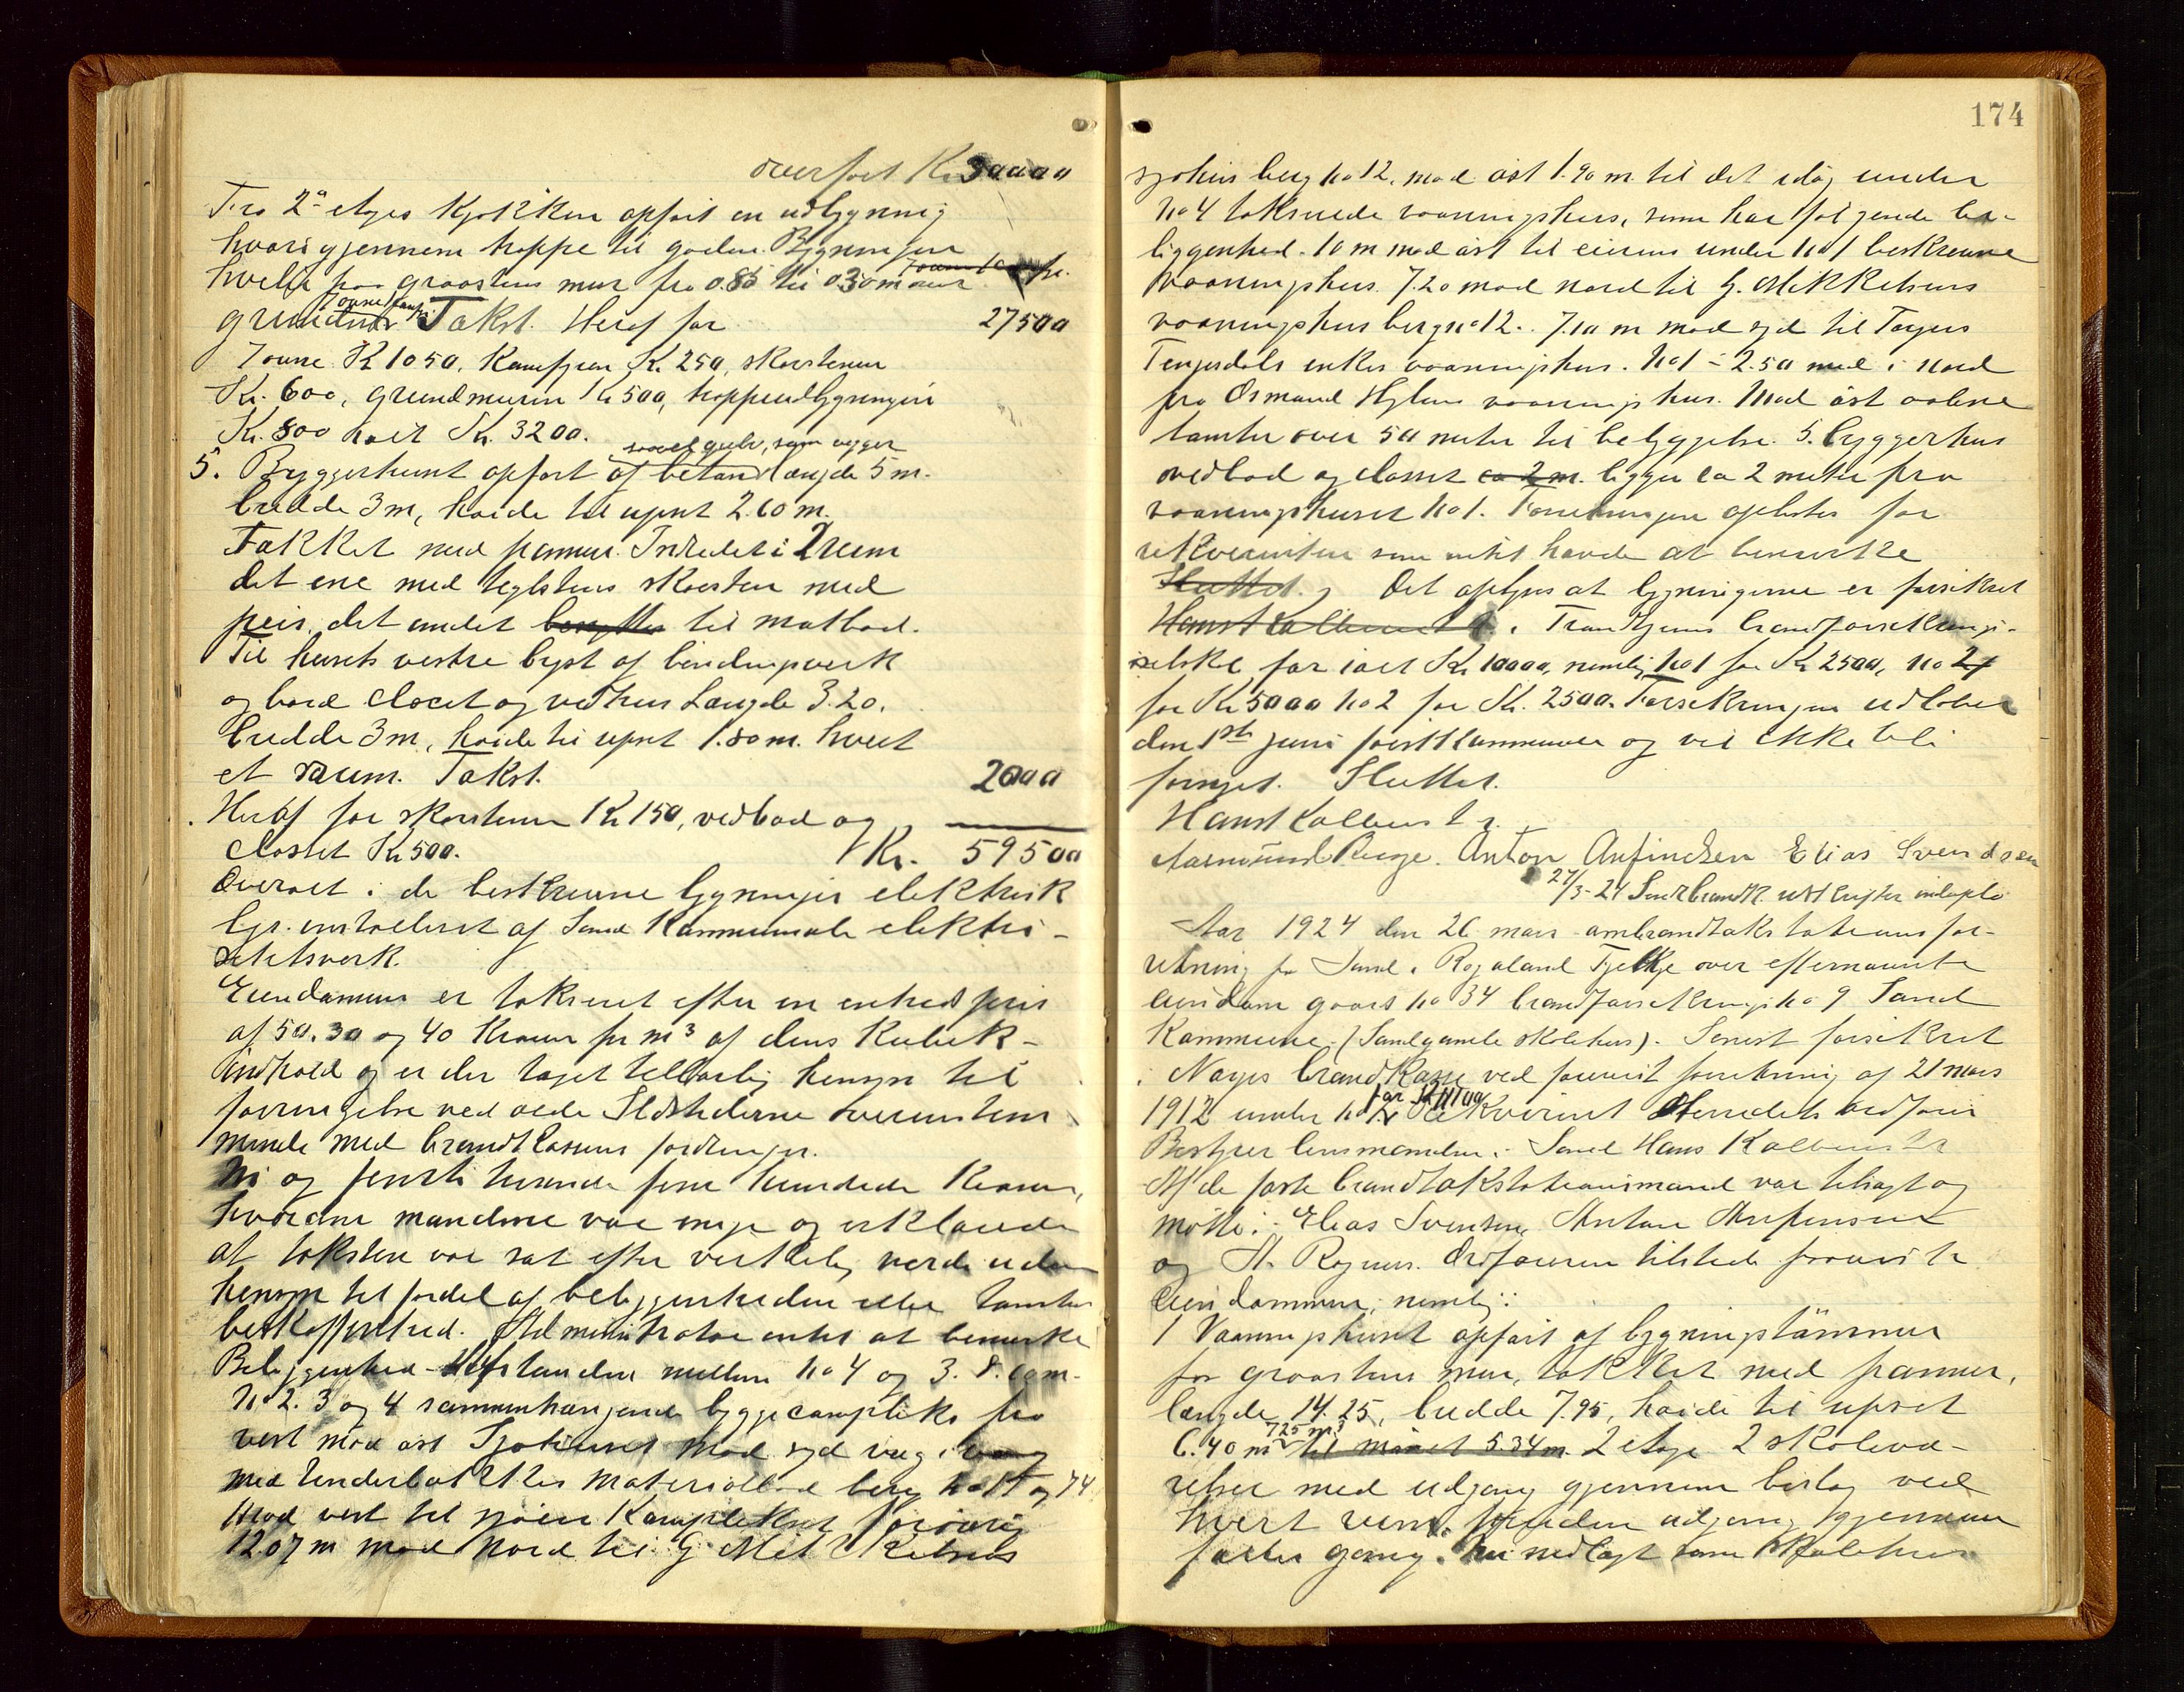 overført Kr 30000
Fra 2den etages Kjøkken opført en udbygning
hvori gjennem trappe til gaden. Bygningen
hviler paa graastens mur fra 0.85 til 0.30 m over
grunden Takst. Heraf for 27500
2 ovne Kr 1050, Kamfyren Kr. 250, skorstenen
Kr. 600, grundmuren Kr 500, trappeudbygningen
Kr. 800 ialt Kr. 3200.
saavel gulv, som vægger
5. Bryggerhuset opført af betong længde 5 m.
bredde 3 m, høide til upset 2.60 m.
Tækket med panner. Indredet i 2 rum
det ene med teglstens skorsten med
peis, det andet til matbod.
Til husets vestre bygt af bindingsverk
og bord closet og vedhus Længde 3.20.
bredde 3 m, høide til upset 1.80 m. hvert
et rum. Takst. 2000
Heraf for skorstenen Kr 150, vedbod og
closset Kr 500. Kr. 59500
Overalt i de beskrevne bygninger elektrisk
lys installeret af Sand Kommunale elektri-
sitetsverk.
Eiendommen er takseret efter en enhedspris
af 50. 30 og 40 Kroner pr m³ af dens Kubik-
indhold og er der taget tilbørlig hensyn til
forringelse ved ælde Ildstederne overenstem-
mende med brandkassens fordringer.
Ni og femti tusende fem hundrede Kroner,
hvorom mændene var enige og erklærede
at taksten var sat efter virkelig værdi uden
hensyn til fordel af beliggenheden eller tomtens
beskaffenhed. Administrator intet at bemerke
Beliggenhed - Afstanden mellem No 4 og 3. 8.60 m.
No 2. 3 og 4 sammenhængende byggecompleks fra
vest mod øst Sjøhuset mod syd væg i væg
med Underbakkes materialbod berg No 11 og 74
Mod vest til sjøen Komplekset forøvrig
12.07 m mod nord til G Mikkelsens
174
sjøhus berg No 12, mod øst 1.90 m til det idag under
No 4 takserede vaaningshus, som har følgende be-
liggenhed. 10 m mod øst til eierens under No 1 beskrevne
vaaningshus. 7.20 mod nord til G. Mikkelsens
vaaningshus berg No 12. 7.10 m mod syd til Torgers
Tengesdals enkes vaaningshus. No 1 = 2.50 mod i nord
fra Osmund Hylens vaaningshus. Mod øst aabne
tomter over 50 meter til bebyggelse. 5. bryggerhus
vedbod og closset ligger ca 2 meter fra
vaaningshuset No 1. Forretningen oplæstes for
rekvirenten som intet havde at bemerke
Det oplyses at bygningerne er forsikret
i Trondhjems brandforsikrings-
selskab for ialt Kr 10000, nemlig No 1 for Kr 2500, No 4
for Kr 5000 No 2 for Kr. 2500. Forsikringen udløber
den 1ste juni førstkommende og vil ikke bli
fornyet. Sluttet.
Hans Kolbenstr.
Aasmund Ringe. Anton Anfindsen Elias Svendsen
27/3-24 Send brandk. utskrifter indløpte
Aar 1924 den 26 mars ombrandtakstationsfor-
retning paa Sand i Rogaland Fylke over efternævnte
eiendom gaards No 34 brandforsikrings No 9 Sand
Kommune (Sand gamle skolehus). Senest forsikret
i Norges brandkasse ved forrent forretning af 21 mars
1912 under No Rekvirent Herredets ordfører
Bestyrer lensmanden i Sand Hans Kolbenstr
Af de faste brandtakstationsmænd var tilsagt og
mötte: Elias Svendsen, Anton Anfinsen
og A. Rognes. Ordføreren tilstede paaviste
Eiendommen, nemlig:
1 Vaaningshuset opført af bygningstömmer
paa graastens mur, tækket med panner,
længde 14.25, bredde 7.95, høide til upset
6.40 m 725 m³ 2 etage 2 skoleva-
relser med udgang gjennem bislag ved
hvert rum, foruden udgang gjennem
forbi gang. Nu nedlagt som skolehus